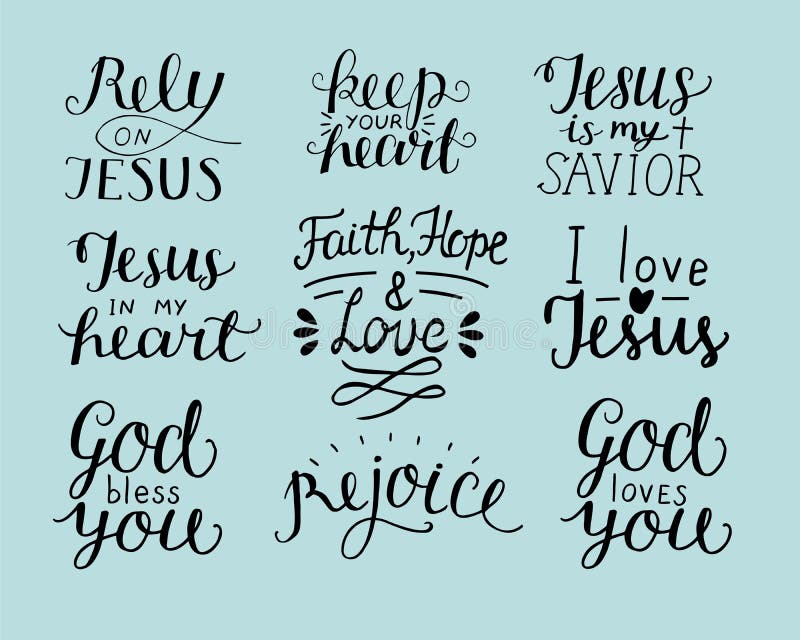 Rely
ON
JESUS
keep
YOUR
heart
Jesus
is my
SAVIOR
Jesus
IN MY
heart
Faith, Hope
&
Love
I love
Jesus
God
bless
you
Rejoice
God
loves
you